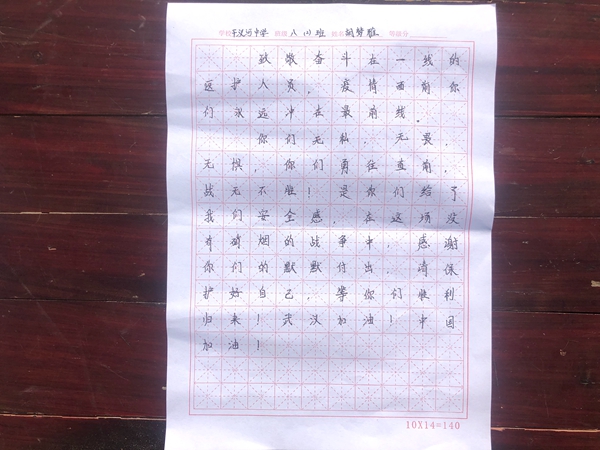 学校 王义贞中学 班级 八(1)班 姓名 胡梦雅 等级分
致敬奋斗在一线的
医护人员，疫情面前你
们永远冲在最前线。
你们无私，无畏，
无惧，你们勇往直前，
战无不胜！是你们给了
我们安全感，在这场没
有硝烟的战争中，感谢
你们的默默付出，请保
护好自己，等你们胜利
归来！武汉加油！中国
加油！
10X14=140